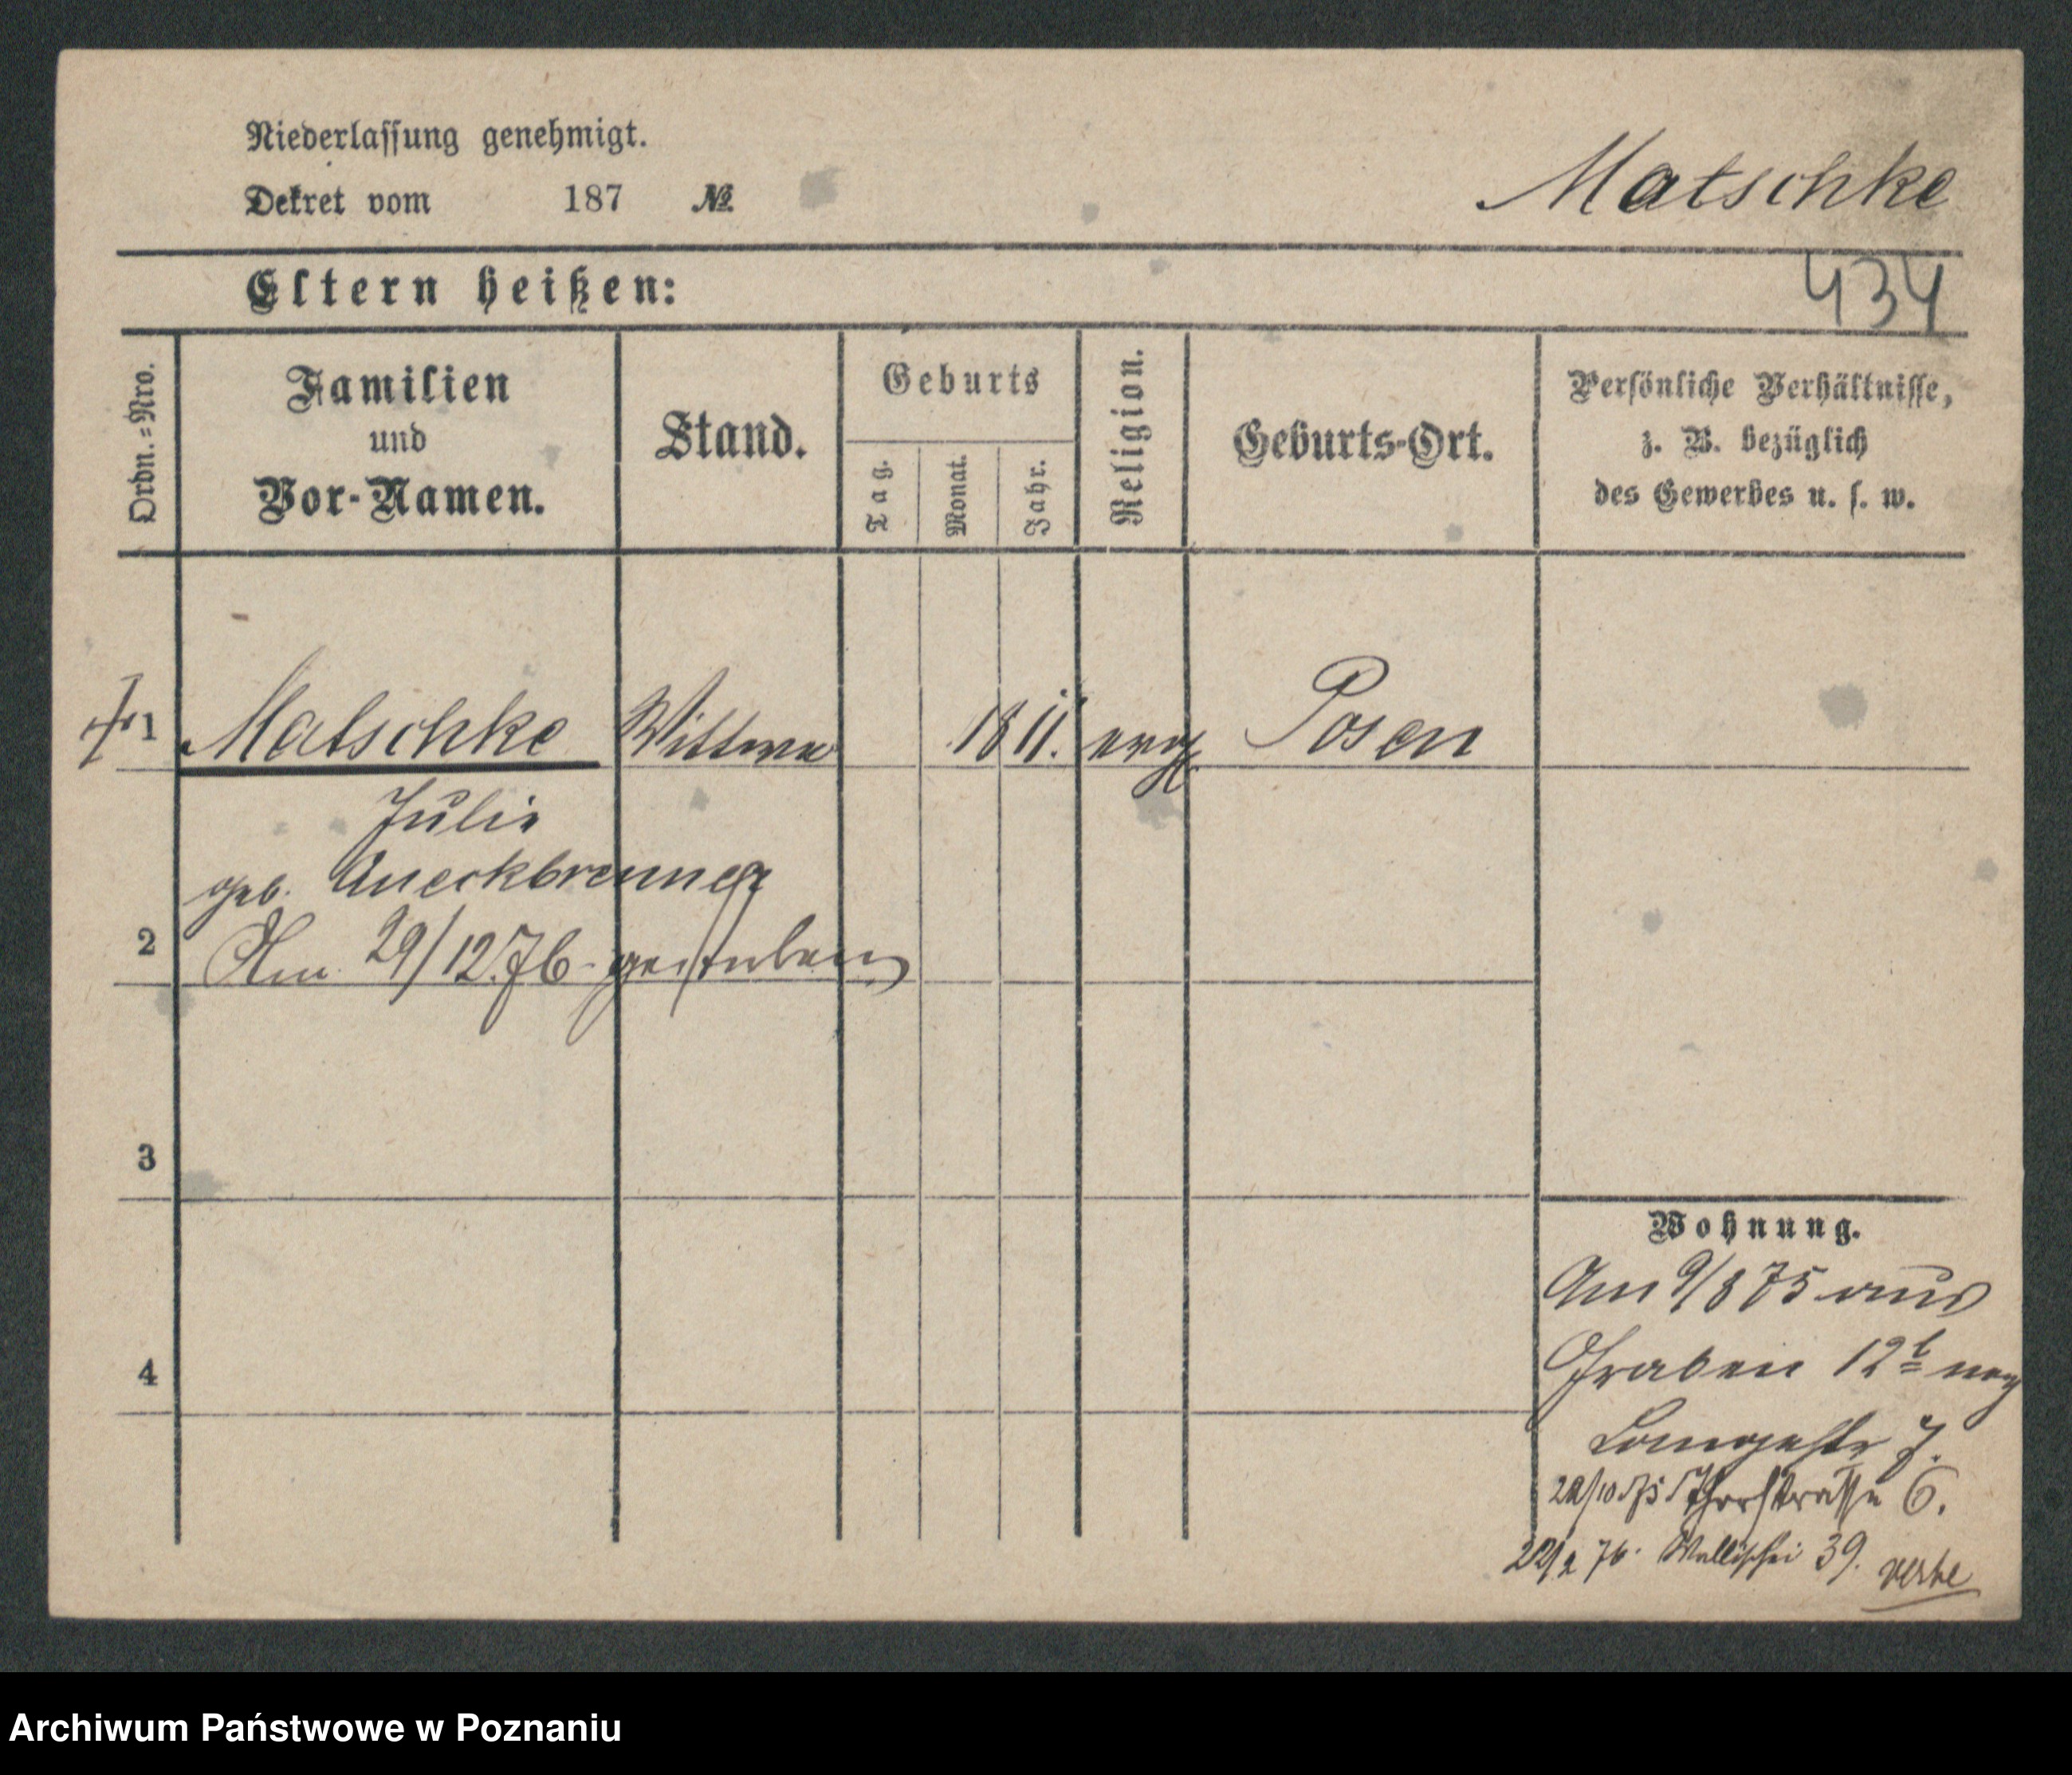 Niederlassung genehmigt.
Dekret vom 187 №
Matschke
Eltern heißen:
434
Ordn.-Nro.
Familien
und
Vor-Namen.
Stand.
Geburts
Tag.
Monat.
Jahr.
Religion.
Geburts-Ort.
Persönliche Verhältnisse,
z. B. bezüglich
des Gewerbes u. s. w.
1 Matschke Wittwe 1811. evg Posen
Julie
geb. Queckbrenner
2 Am 29/12.76. gestorben
3
4
Wohnung.
Am 9/8 75 aus
Graben 12 b nag
Langestr 7.
75 Thorstrasse 6.
76. Wallischei 39.
Archiwum Państwowe w Poznaniu